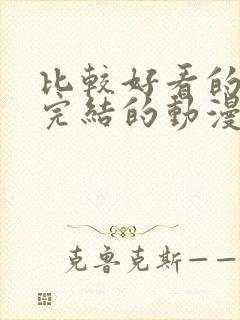 比較好看的
完結的動漫
克魯克斯——